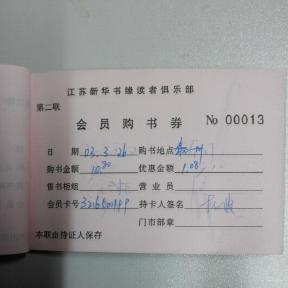 江苏新华书缘读者俱乐部
第二联
会员购书券 No 00013
日期 03.3.26 购书地点
购书金额 10.80 优惠金额 1.08
售书柜组 营业员
会员卡号 持卡人签名
门市部章
本联由持证人保存